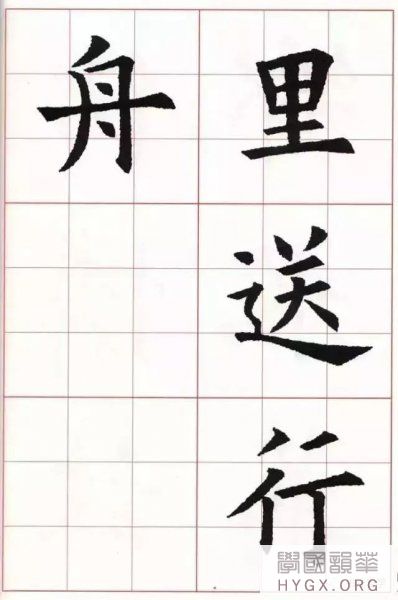 里送行
舟
華韻國學
HYGX.ORG